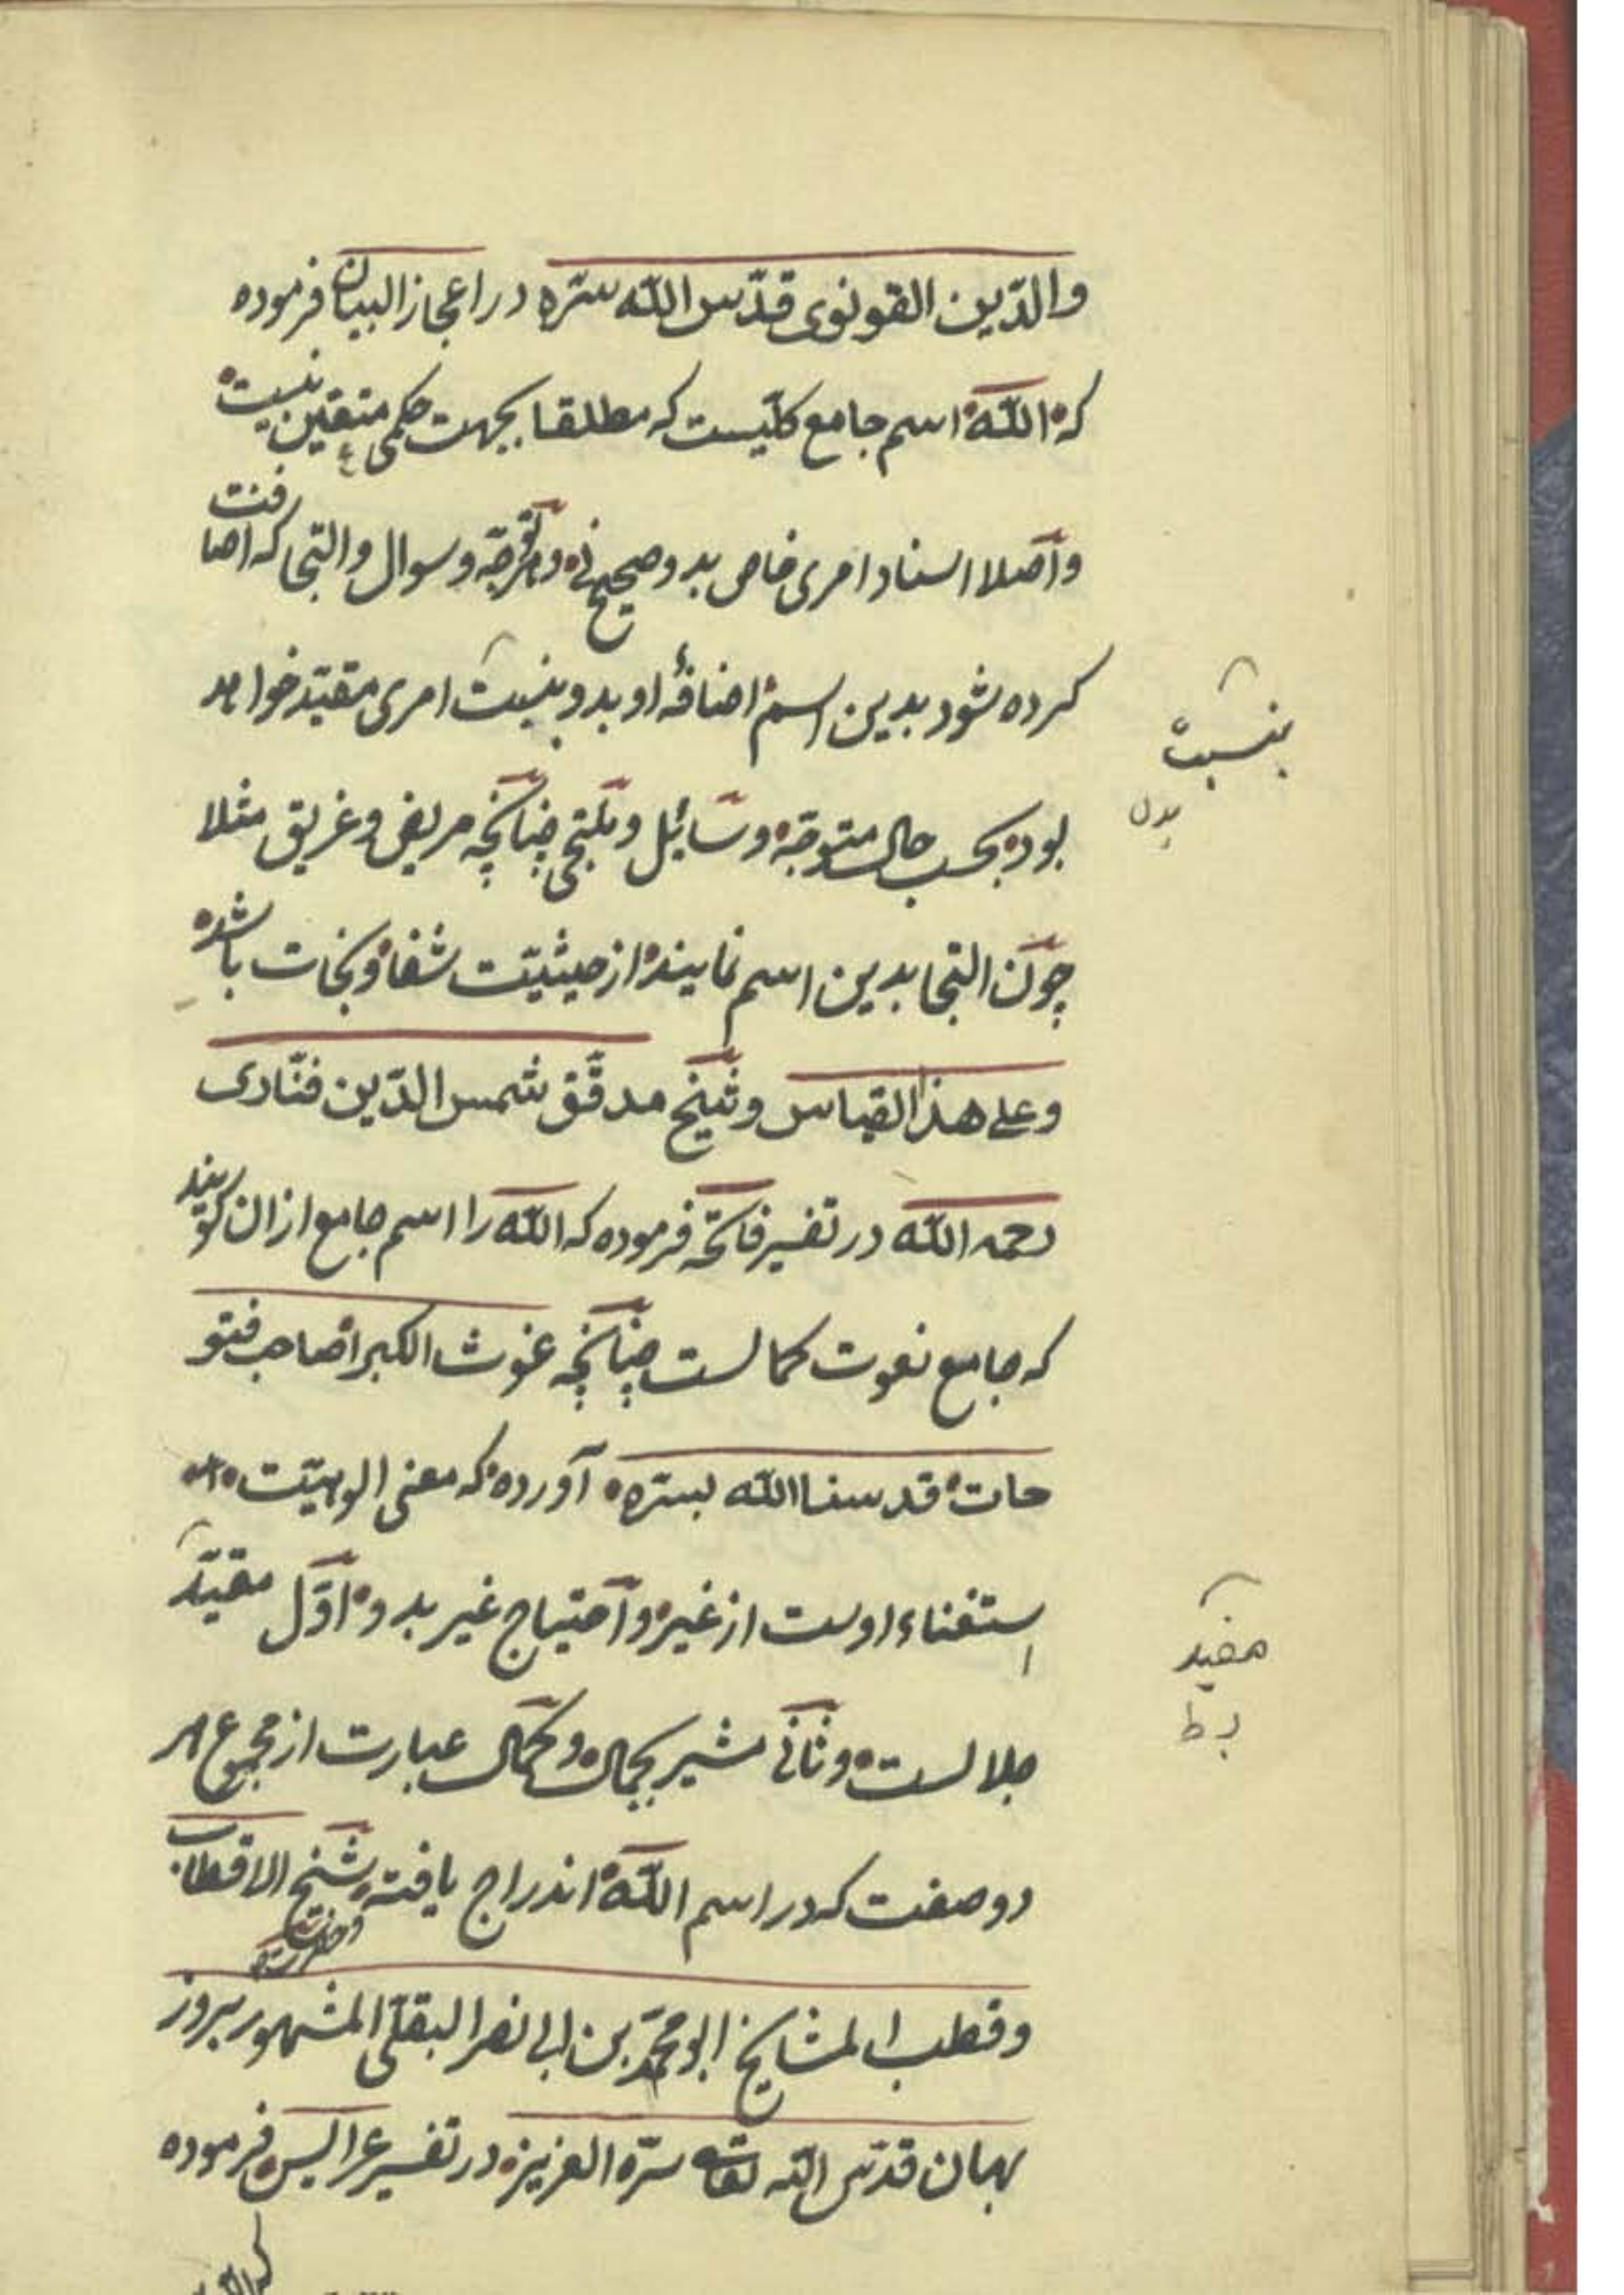 والدّین القونوی قدّس الله سرّه در اعجاز البیان فرموده
که الله اسم جامع کلّیست که مطلقا بجهت حکمی متعیّن نیست
و اصلا اسناد امری خاص بدو صحیح نی و توجّه و سوال و التجا که اضافت
کرده شود بدین اسم اضافهٔ او بدو بنسبت امری مقیّد خواهد
بنسبت
بدل
بود بحسب حال متوجّه و سائل و ملتجی چنانچه مریض و غریق مثلا
چون التجا بدین اسم نمایند از حیثیّت شفا و نجات باشد
و علی هذا القیاس و شیخ مدقّق شمس الدّین فنّاری
رحمه الله در تفسیر فاتحه فرموده که الله را اسم جامع ازان گویند
که جامع نعوت کمالست چنانچه غوث الکبرا صاحب فتو
حات قدسنا الله بسرّه آورده که معنی الوهیّت
استغناء اوست از غیر و احتیاج غیر بدو اوّل مقیّد
مفید
ب ط
جلالست و ثانی مشیر بجمال و کمال عبارت از مجموع هر
دو صفت که در اسم الله اندراج یافته شیخ الاقطاب
و قطب المشایخ ابو محمّد بن ابی نصر البقلی المشهور بروز
بهان قدّس الله تعالی سرّه العزیز در تفسیر عرایس فرموده